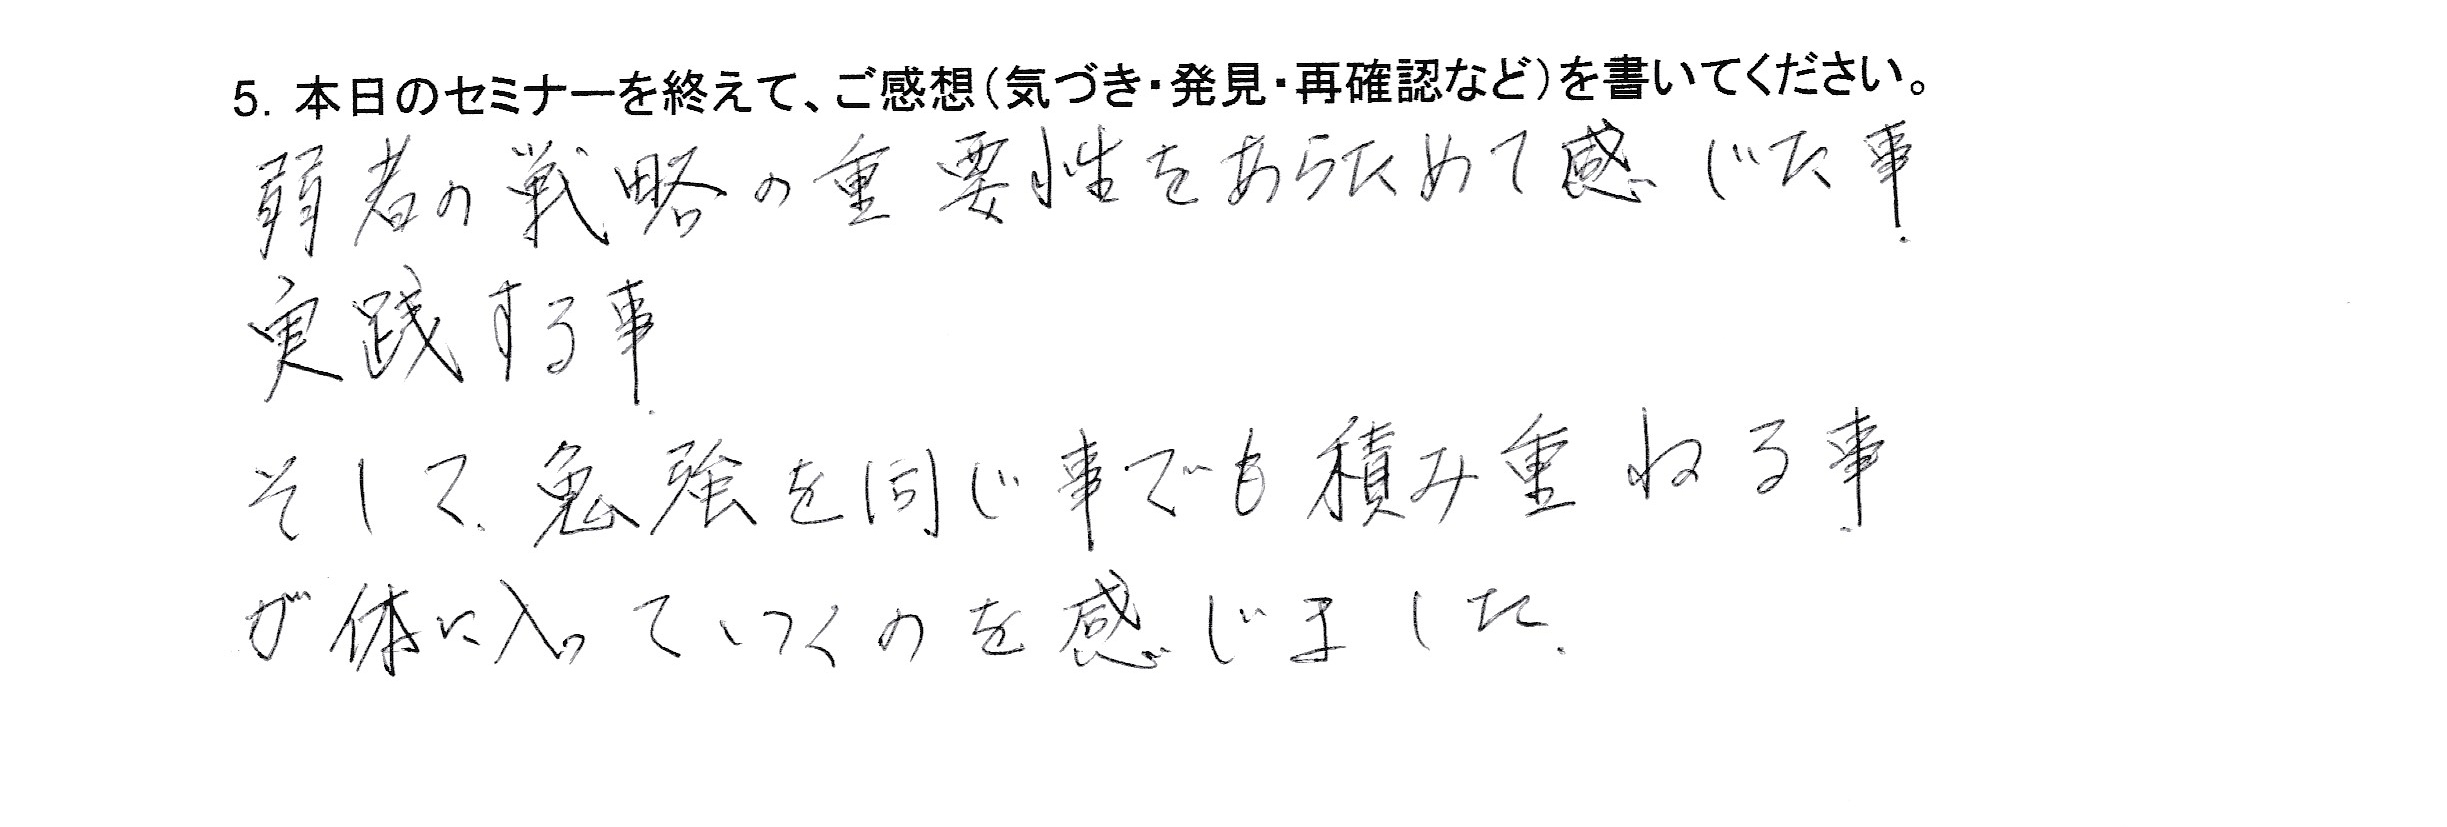 5. 本日のセミナーを終えて、ご感想(気づき・発見・再確認など)を書いてください。
弱者の戦略の重要性をあらためて感じた事.
実践する事.
そして.勉強を同じ事でも積み重ねる事.
が体に入っていくのを感じました.